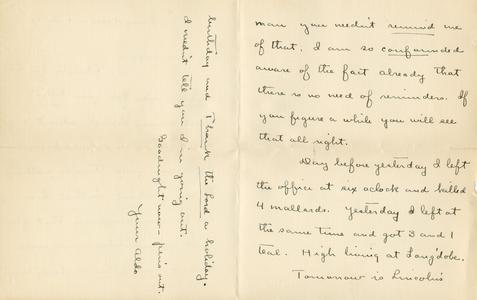 man you needn't remind me
of that. I am so confounded
aware of the fact already that
there is no need of reminders. If
you figure a while you will see
that all right.
Day before yesterday I left
the office at six oclock and balled
4 mallards. Yesterday I left at
the same time and got 3 and 1
teal. High living at Lang'dobe.
Tomorrow is Lincoln's
birthday and Thank the Lord a holiday.
I needn't tell you I'm going out.
Goodnight now – pen's out.
Your Aldo